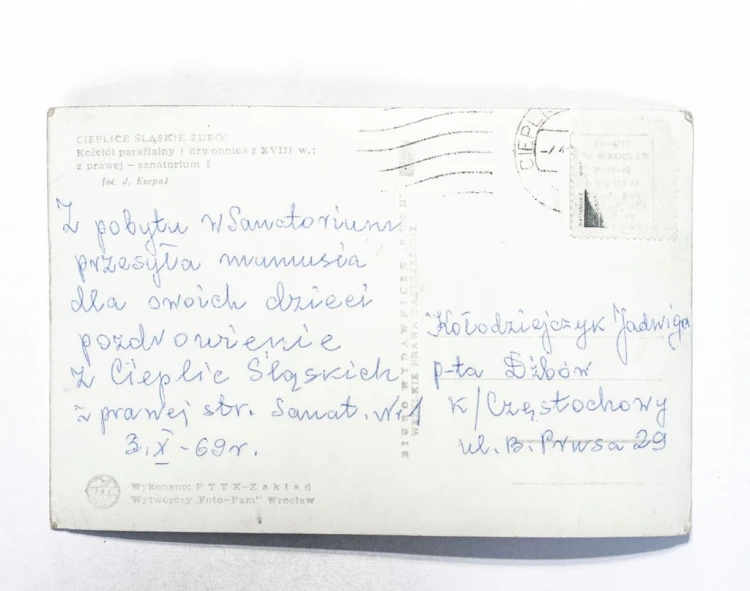 CIEPLICE ŚLĄSKIE ZDRÓJ
Kościół parafialny i dzwonnica z XVIII w.;
z prawej – sanatorium I
fot. J. Korpal
Z pobytu w Sanatorium
przesyła mamusia
dla swoich dzieci
pozdrowienie
z Cieplic Śląskich
z prawej str. Sanat. nr 1
3.X-69r.
Wykonano: PTTK-Zakład
Wytwórczy „Foto-Pam" Wrocław
BIURO WYDAWNICZE „RUCH"
WSZELKIE PRAWA ZASTRZEŻONE
CIEPLI
Kołodziejczyk Jadwiga
p-ta Dźbów
k/Częstochowy
ul. B. Prusa 29